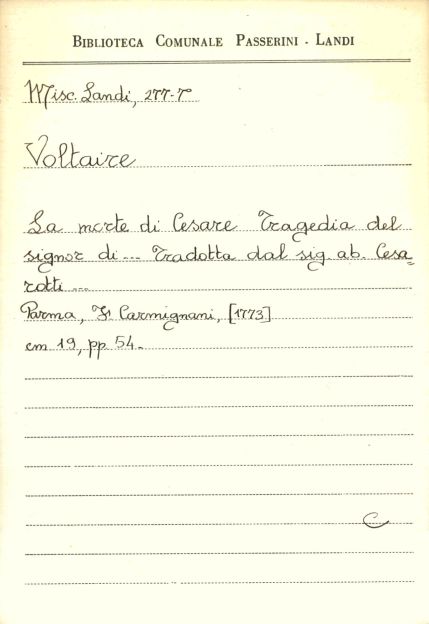 BIBLIOTECA COMUNALE PASSERINI - LANDI
Misc. Landi, 277-7
Voltaire
La morte di Cesare Tragedia del
signor di --- Tradotta dal sig. ab. Cesa=
rotti ---
Parma, F. Carmignani, [1773]
cm 19, pp. 54.
C